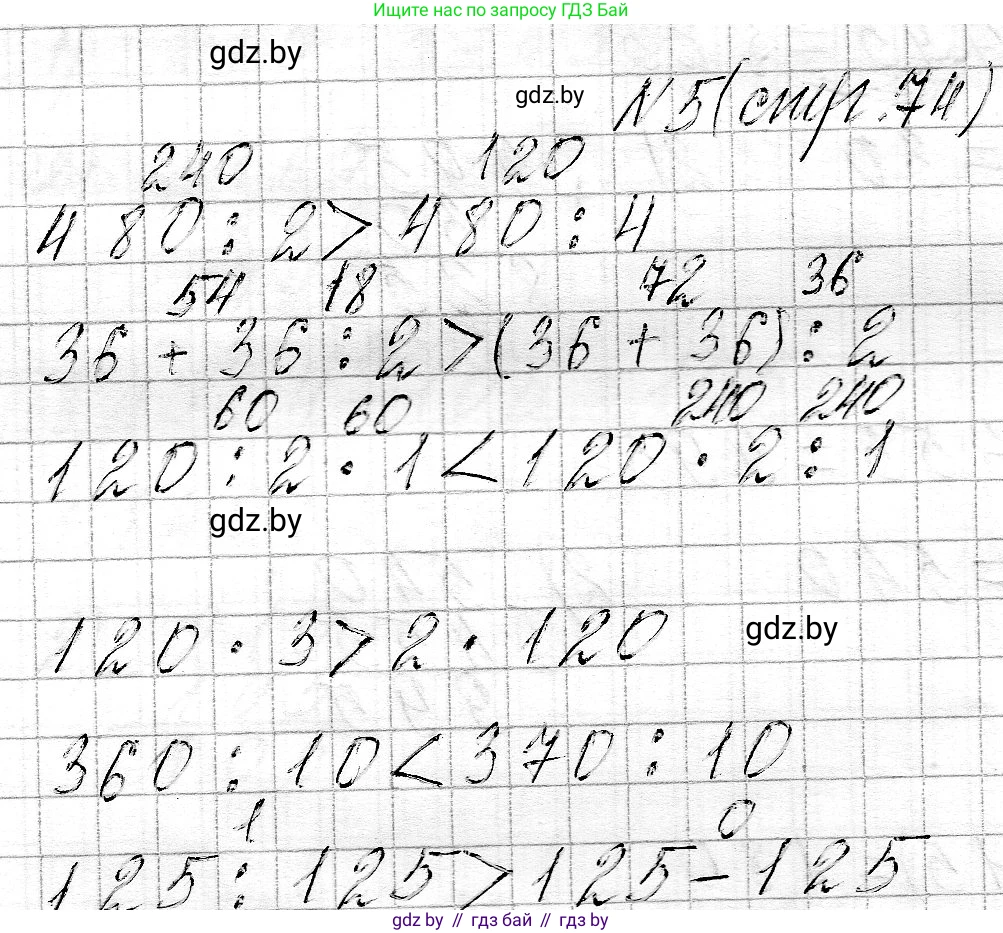 Ищите нас по запросу ГДЗ Бай
gdz.by
gdz.by
N5(стр.74)
240 120
480:2>480:4
54 18 72 36
36+36:2>(36+36):2
60 60 240 240
120:2·1<120·2:1
gdz.by
120·3>2·120
gdz.by
360:10<370:10
1 0
125:125>125-125
gdz by // гдз бай // гдз by